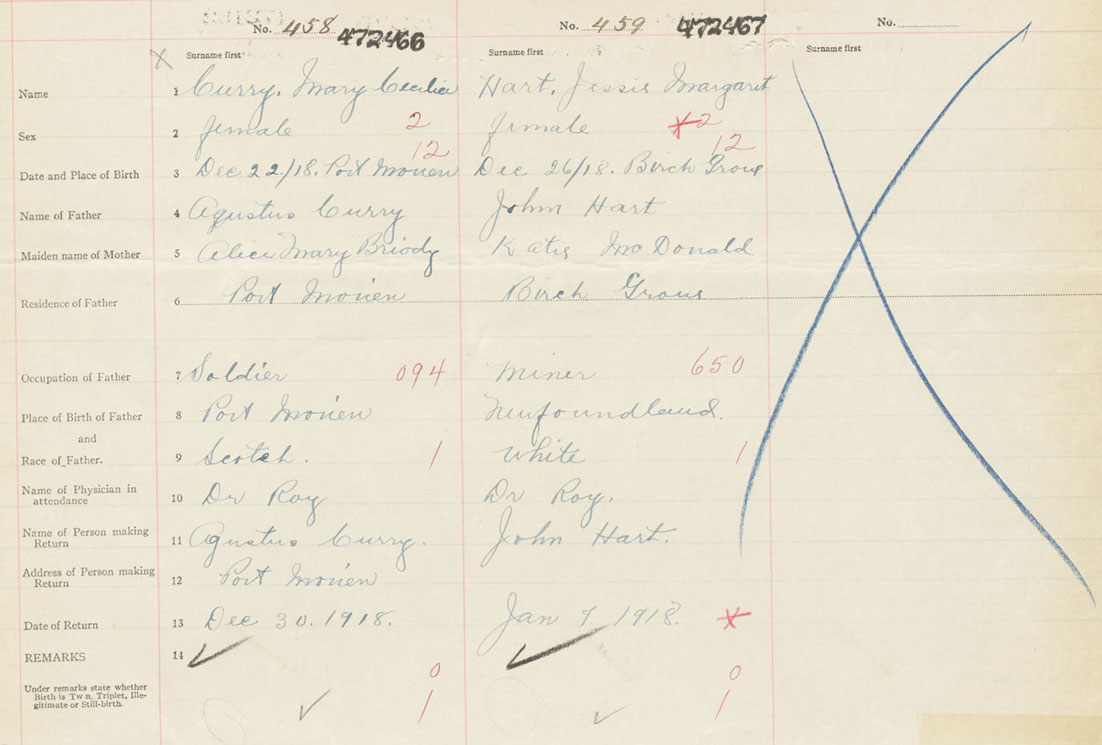 No. 458 472466 No. 459 472467 No.
Surname first Surname first Surname first
Name 1 Curry, Mary Cecilia Hart, Jessie Margaret
Sex 2 female 2 female 2
12 12
Date and Place of Birth 3 Dec 22/18. Port Morien Dec 26/18. Birch Grove
Name of Father 4 Agustus Curry John Hart
Maiden name of Mother 5 Alice Mary Briody Katie McDonald
Residence of Father 6 Port Morien Birch Grove
Occupation of Father 7 Soldier 094 Miner 650
Place of Birth of Father 8 Port Morien Newfoundland.
and
Race of Father. 9 Scotch. 1 White 1
Name of Physician in
attendance 10 Dr Roy Dr Roy.
Name of Person making
Return 11 Agustus Curry. John Hart.
Address of Person making
Return 12 Port Morien
Date of Return 13 Dec 30. 1918. Jan 7 1918.
REMARKS 14
0 0
Under remarks state whether
Birth is Twin, Triplet, Ille-
gitimate or Still-birth. 1 1